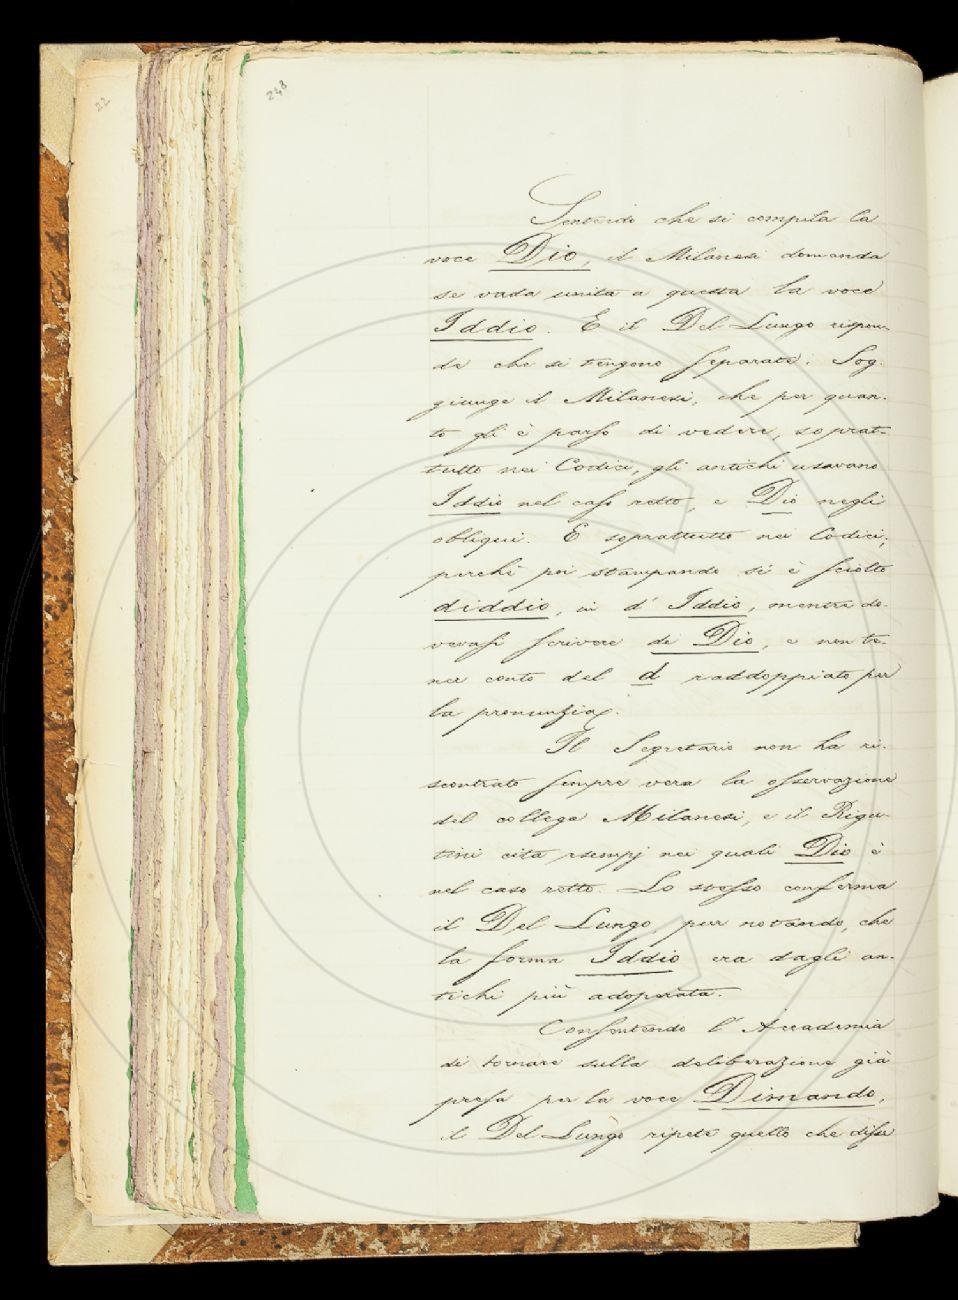 22
248
Sentendo che si compila la
voce Dio, il Milanesi domanda
se vada unita a questa la voce
Iddio. E il Del Lungo rispon-
de che si tengono separate. Sog-
giunge il Milanesi, che per quan-
to gli è parso di vedere, soprat-
tutto nei Codici, gli antichi usavano
Iddio nel caso retto, e Dio negli
obliqui. E soprattutto nei Codici;
perchè poi stampando si è sciolto
diddio, in d'Iddio, mentre do-
vevasi scrivere di Dio, e non te-
ner conto del d raddoppiato per
la pronunzia.
Il Segretario non ha ri-
scontrato sempre vera la osservazione
del collega Milanesi, e il Rigu-
tini cita esempj nei quali Dio è
nel caso retto. Lo stesso conferma
il Del Lungo, pur notando, che
la forma Iddio era dagli an-
tichi più adoperata.
Consentendo l'Accademia
di tornare sulla deliberazione già
presa per la voce Dimando,
il Del Lungo ripete quello che disse